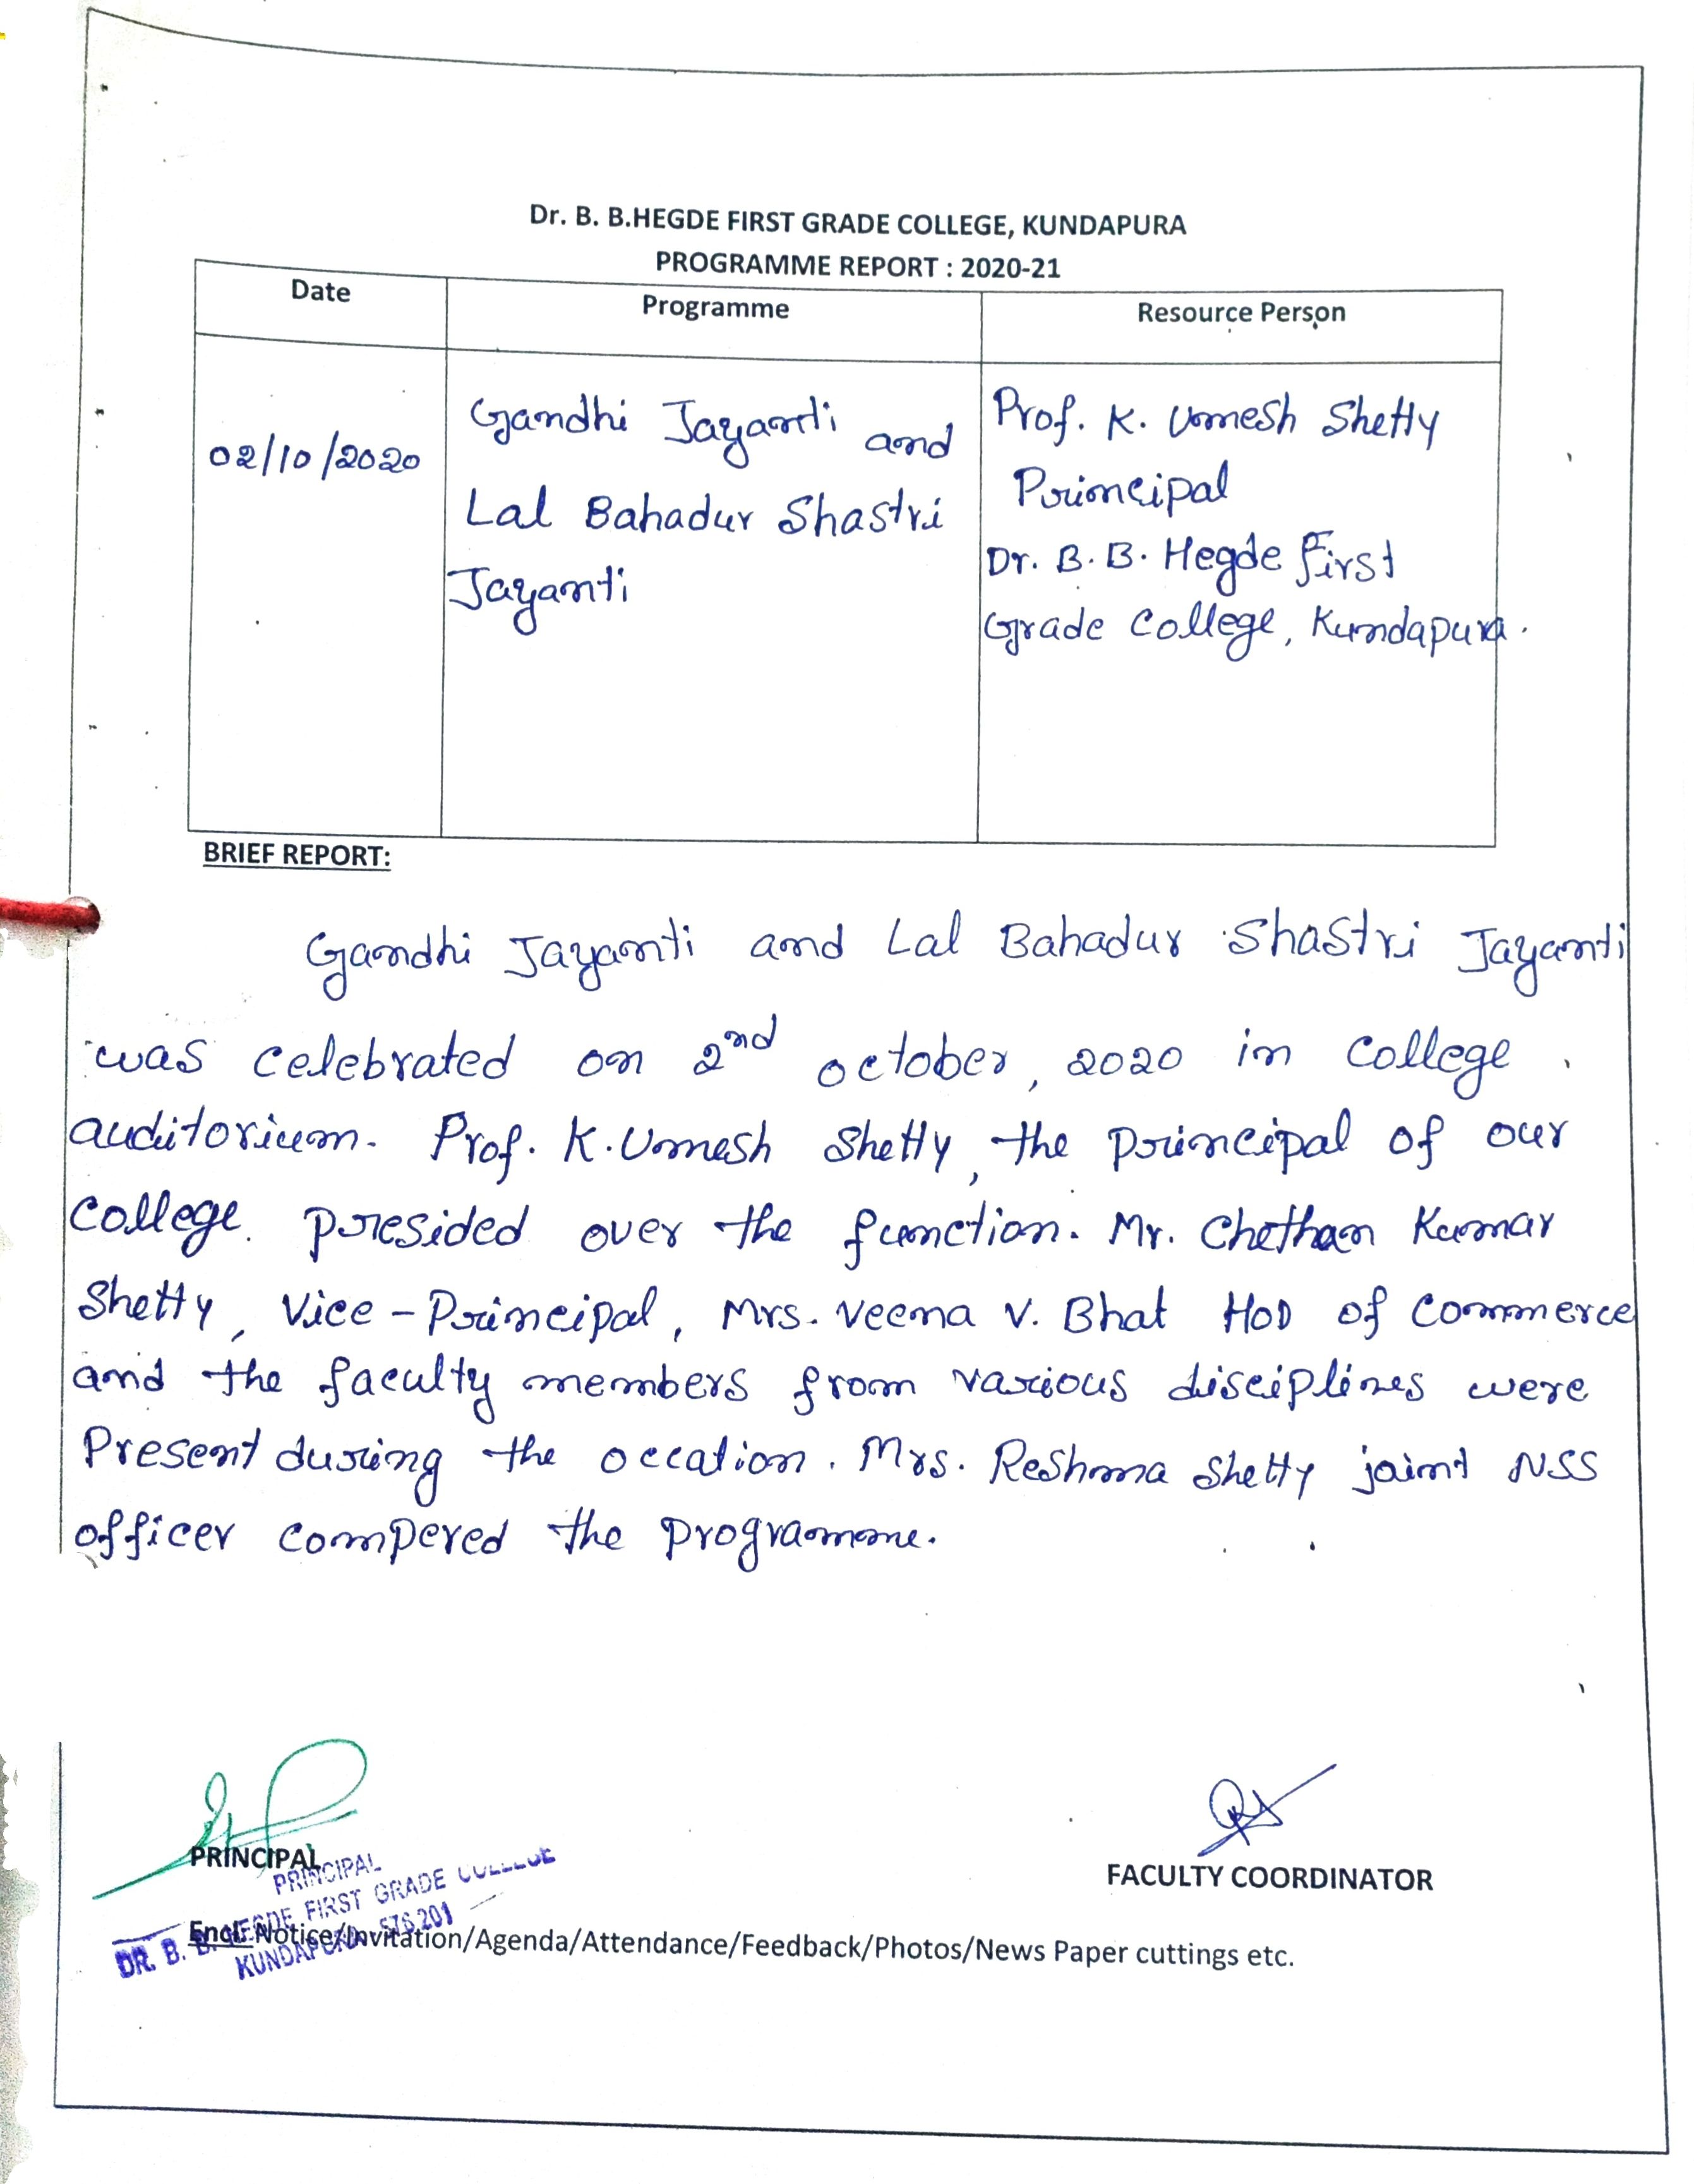 Dr. B. B.HEGDE FIRST GRADE COLLEGE, KUNDAPURA
PROGRAMME REPORT : 2020-21
Date
Programme
Resource Person
02/10/2020
Gandhi Jayanti and
Lal Bahadur Shastri
Jayanti
Prof. K. Umesh Shetty
Principal
Dr. B. B. Hegde First
Grade College, Kundapura.
BRIEF REPORT:
Gandhi Jayanti and Lal Bahadur Shastri Jayanti
was celebrated on 2nd october, 2020 in college
auditorium. Prof. K. Umesh Shetty, the principal of our
college. presided over the function. Mr. Chethan Kumar
Shetty, Vice-Principal, Mrs. Veena V. Bhat HOD of commerce
and the faculty members from various disciplines were
Present during the occation. Mrs. Reshma Shetty joint NSS
officer compered the programme.
PRINCIPAL
FACULTY COORDINATOR
PRINCIPAL
DR. B. B. HEGDE FIRST GRADE COLLEGE
KUNDAPURA 576 201
Encl: Notice/Invitation/Agenda/Attendance/Feedback/Photos/News Paper cuttings etc.